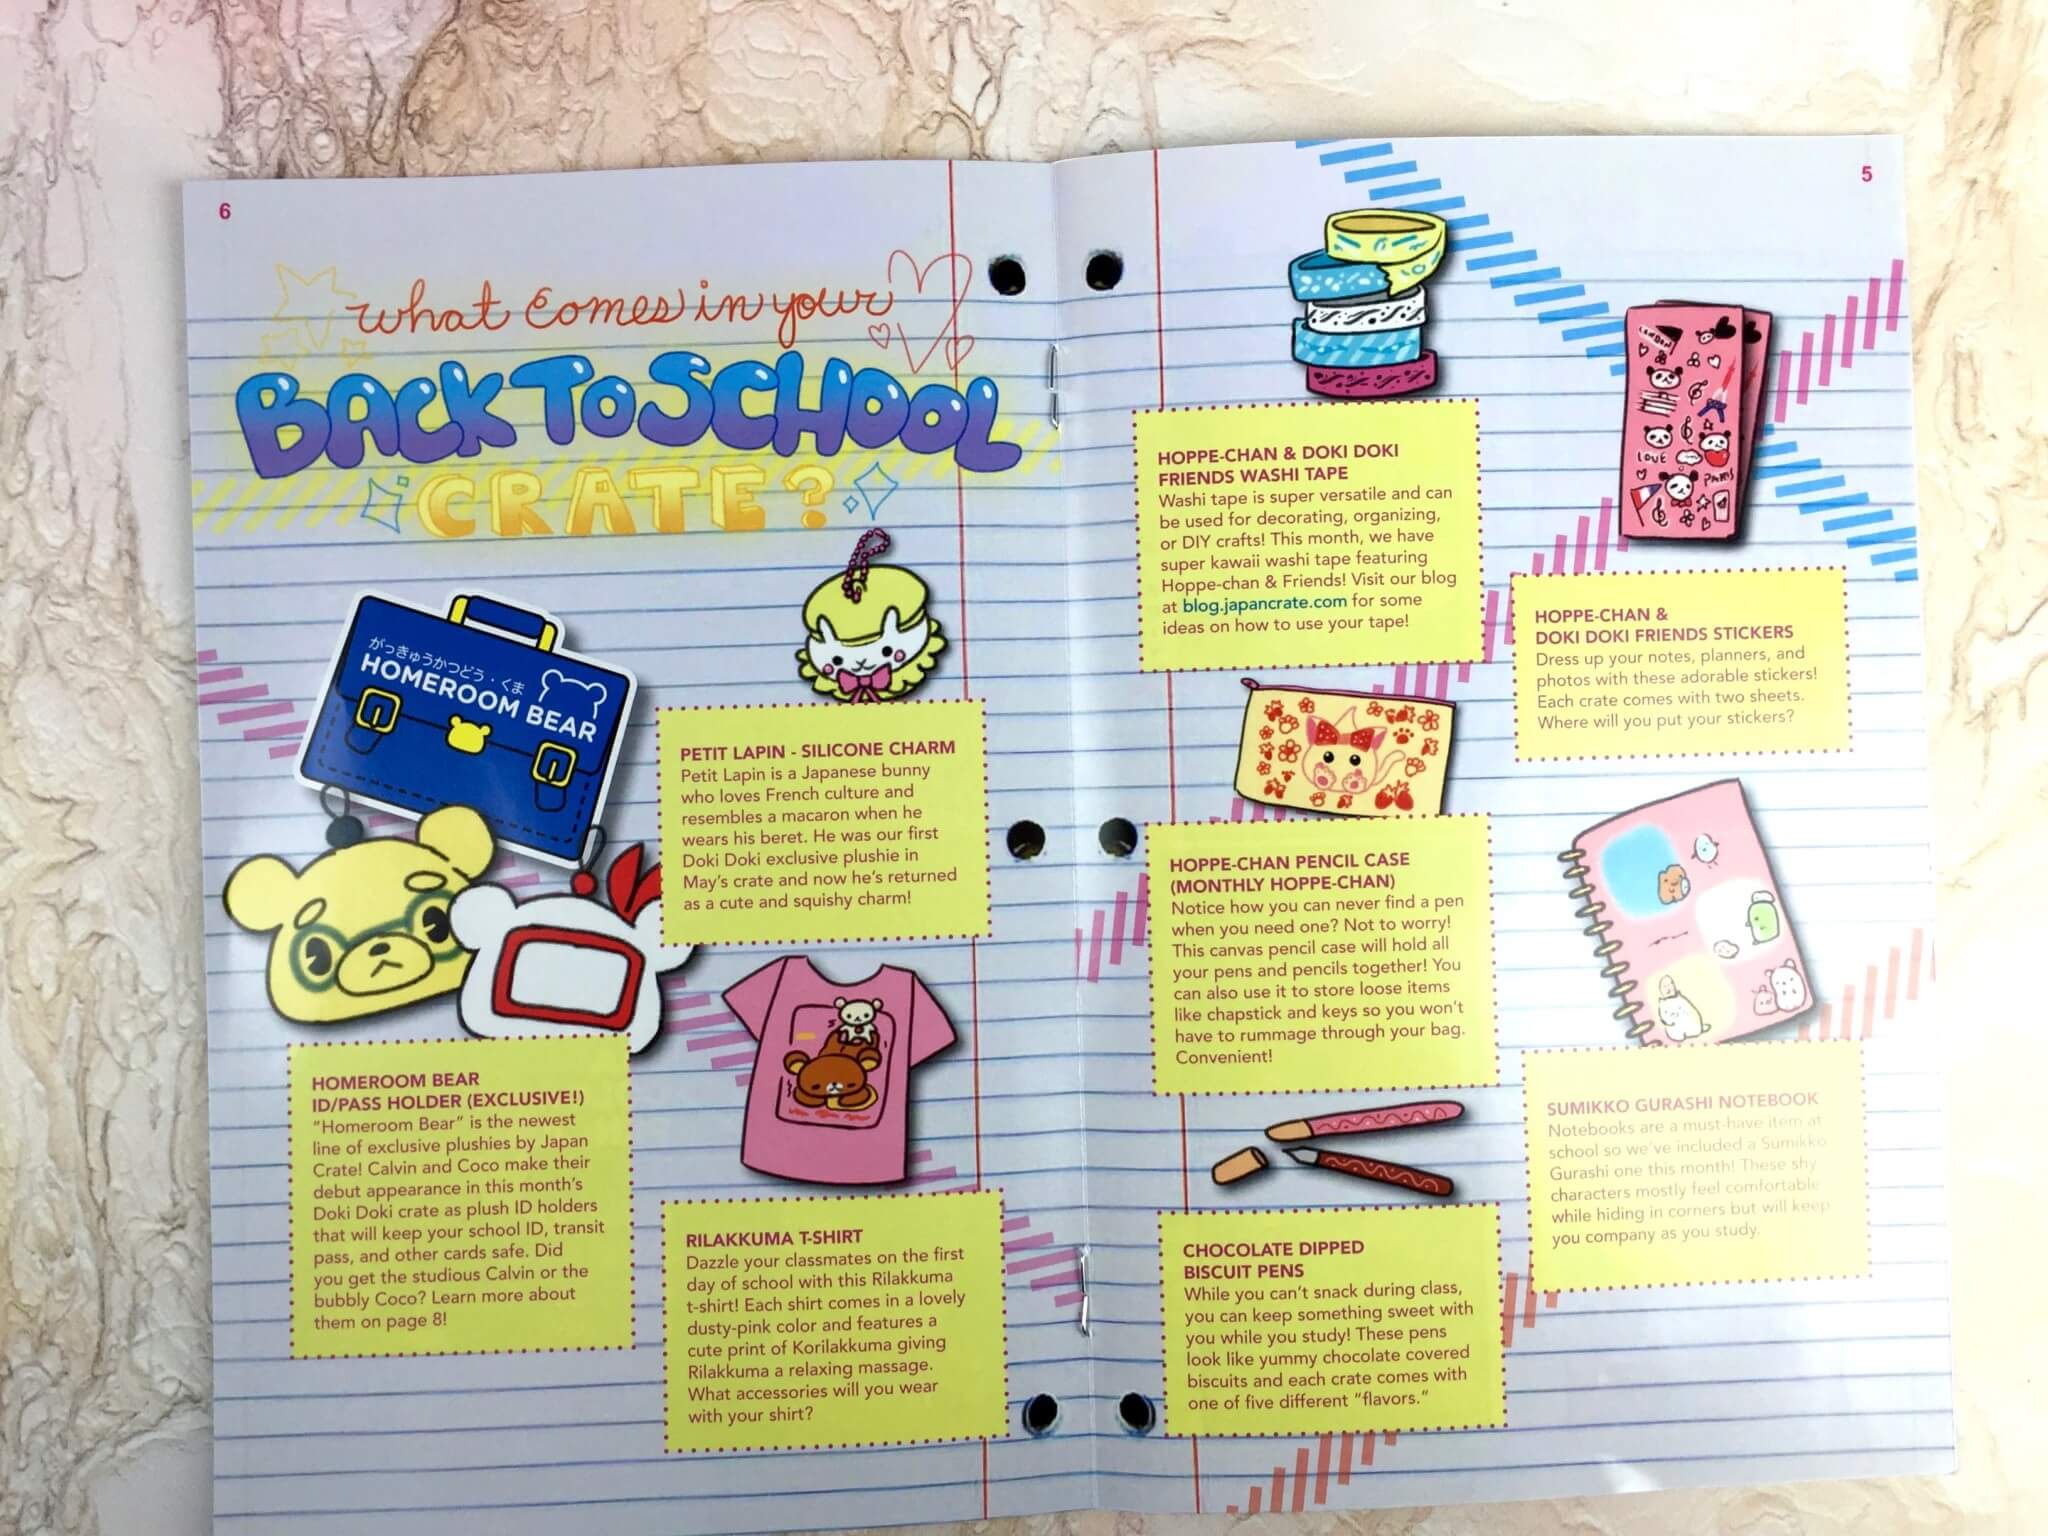 6
What comes in your
BACK TO SCHOOL
CRATE?
がっきゅうかつどう・くま
HOMEROOM BEAR
HOMEROOM BEAR
ID/PASS HOLDER (EXCLUSIVE!)
"Homeroom Bear" is the newest
line of exclusive plushies by Japan
Crate! Calvin and Coco make their
debut appearance in this month's
Doki Doki crate as plush ID holders
that will keep your school ID, transit
pass, and other cards safe. Did
you get the studious Calvin or the
bubbly Coco? Learn more about
them on page 8!
PETIT LAPIN - SILICONE CHARM
Petit Lapin is a Japanese bunny
who loves French culture and
resembles a macaron when he
wears his beret. He was our first
Doki Doki exclusive plushie in
May's crate and now he's returned
as a cute and squishy charm!
RILAKKUMA T-SHIRT
Dazzle your classmates on the first
day of school with this Rilakkuma
t-shirt! Each shirt comes in a lovely
dusty-pink color and features a
cute print of Korilakkuma giving
Rilakkuma a relaxing massage.
What accessories will you wear
with your shirt?
5
HOPPE-CHAN & DOKI DOKI
FRIENDS WASHI TAPE
Washi tape is super versatile and can
be used for decorating, organizing,
or DIY crafts! This month, we have
super kawaii washi tape featuring
Hoppe-chan & Friends! Visit our blog
at blog.japancrate.com for some
ideas on how to use your tape!
LONDON
LOVE
PARIS
HOPPE-CHAN &
DOKI DOKI FRIENDS STICKERS
Dress up your notes, planners, and
photos with these adorable stickers!
Each crate comes with two sheets.
Where will you put your stickers?
HOPPE-CHAN PENCIL CASE
(MONTHLY HOPPE-CHAN)
Notice how you can never find a pen
when you need one? Not to worry!
This canvas pencil case will hold all
your pens and pencils together! You
can also use it to store loose items
like chapstick and keys so you won't
have to rummage through your bag.
Convenient!
SUMIKKO GURASHI NOTEBOOK
Notebooks are a must-have item at
school so we've included a Sumikko
Gurashi one this month! These shy
characters mostly feel comfortable
while hiding in corners but will keep
you company as you study.
CHOCOLATE DIPPED
BISCUIT PENS
While you can't snack during class,
you can keep something sweet with
you while you study! These pens
look like yummy chocolate covered
biscuits and each crate comes with
one of five different "flavors."